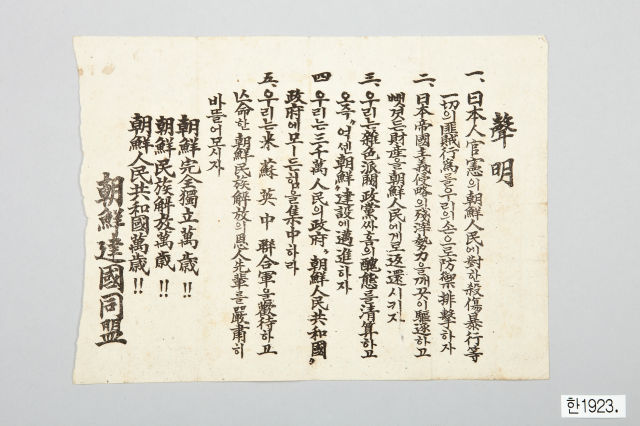 聲明
一、日本人官憲의朝鮮人民에對한殺傷暴行等
一切의匪賊行爲를우리의손으로防禦排擊하자
二、日本帝國主義侵略의殘滓勢力을깨끗이驅逐하고
뺏겻든財産을朝鮮人民에게로返還시키자
三、우리는雜色派閥政黨싸홈의醜態를淸算하고
오즉〝여센朝鮮〟建設에邁進하자
四 우리는三千萬人民의政府〝朝鮮人民共和國〟
政府에모ー든힘을集中하라
五、우리는米 蘇 英 中 聯合軍을歡待하고
亡命한朝鮮民族解放의恩人先輩을嚴肅히
바뜰어모시자
朝鮮完全獨立萬歲!!
朝鮮民族解放萬歲!!
朝鮮人民共和國萬歲!!
朝鮮建國同盟
한1923.